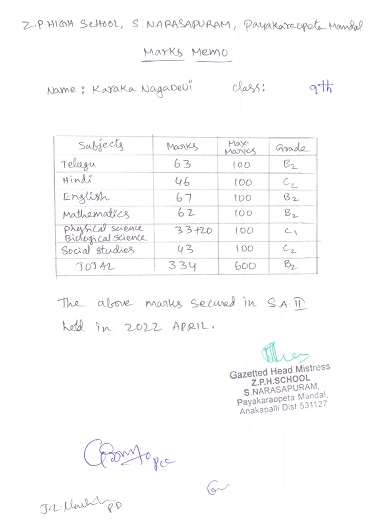 Z.P HIGH SCHOOL, S.NARASAPURAM, Payakaraopeta Mandal
Marks Memo
Name: Karaka Nagadevi class: 9th
Subjects Marks Max-Marks Grade
Telegu 63 100 B2
Hindi 46 100 C2
English 67 100 B2
Mathematics 62 100 B2
Physical science
Biological science 33+20 100 C1
Social studies 43 100 C2
TOTAL 334 600 B2
The above marks secured in S.A II
held in 2022 APRIL.
Gazetted Head Mistress
Z.P.H.SCHOOL
S.NARASAPURAM,
Payakaraopeta Mandal,
Anakapalli Dist 531127
PD